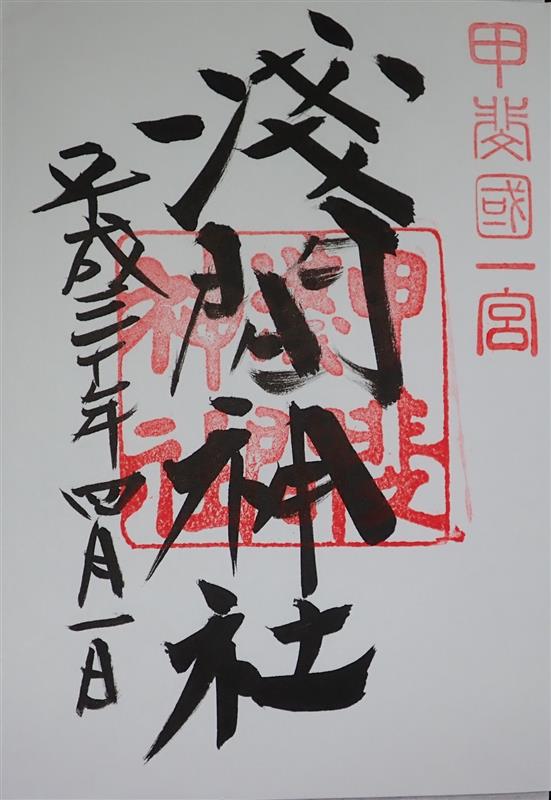 甲斐國一宮
淺間神社
甲斐
淺間
神社
平成三十年四月一日